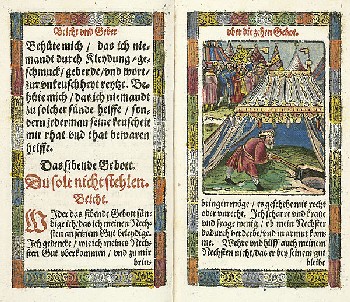 Beicht und Gebet
Behüte mich / das ich nie-
mandt durch Kleydung / ge-
schmuck / geberde / und wort
zur unkeuschheyt reytze. Be-
hüte mich / das ich niemandt
zu solcher sünde helffe / son-
dern jederman seine keuscheit
mit rhat und that bewaren
helffe.
Das sibende Gebott.
Du solt nicht stehlen.
Beicht.
WIder das sibende Gebot sün-
dige ich / das ich meinen Nech-
sten an seinem Gut beleydige.
Ich gedencke / wie ich meines Nech-
sten Gut uberkommen / und zu mir
brin-
uber die zehen Gebot.
bringen möge / es geschehe mit recht
oder unrecht. Ich scharre und kratze
und frage wenig / ob mein Nechster
dadurch verderbe / und in armut kom-
me. Wehre und hilff auch meinem
Nechsten nicht / das er bey seinem gut
bleibe